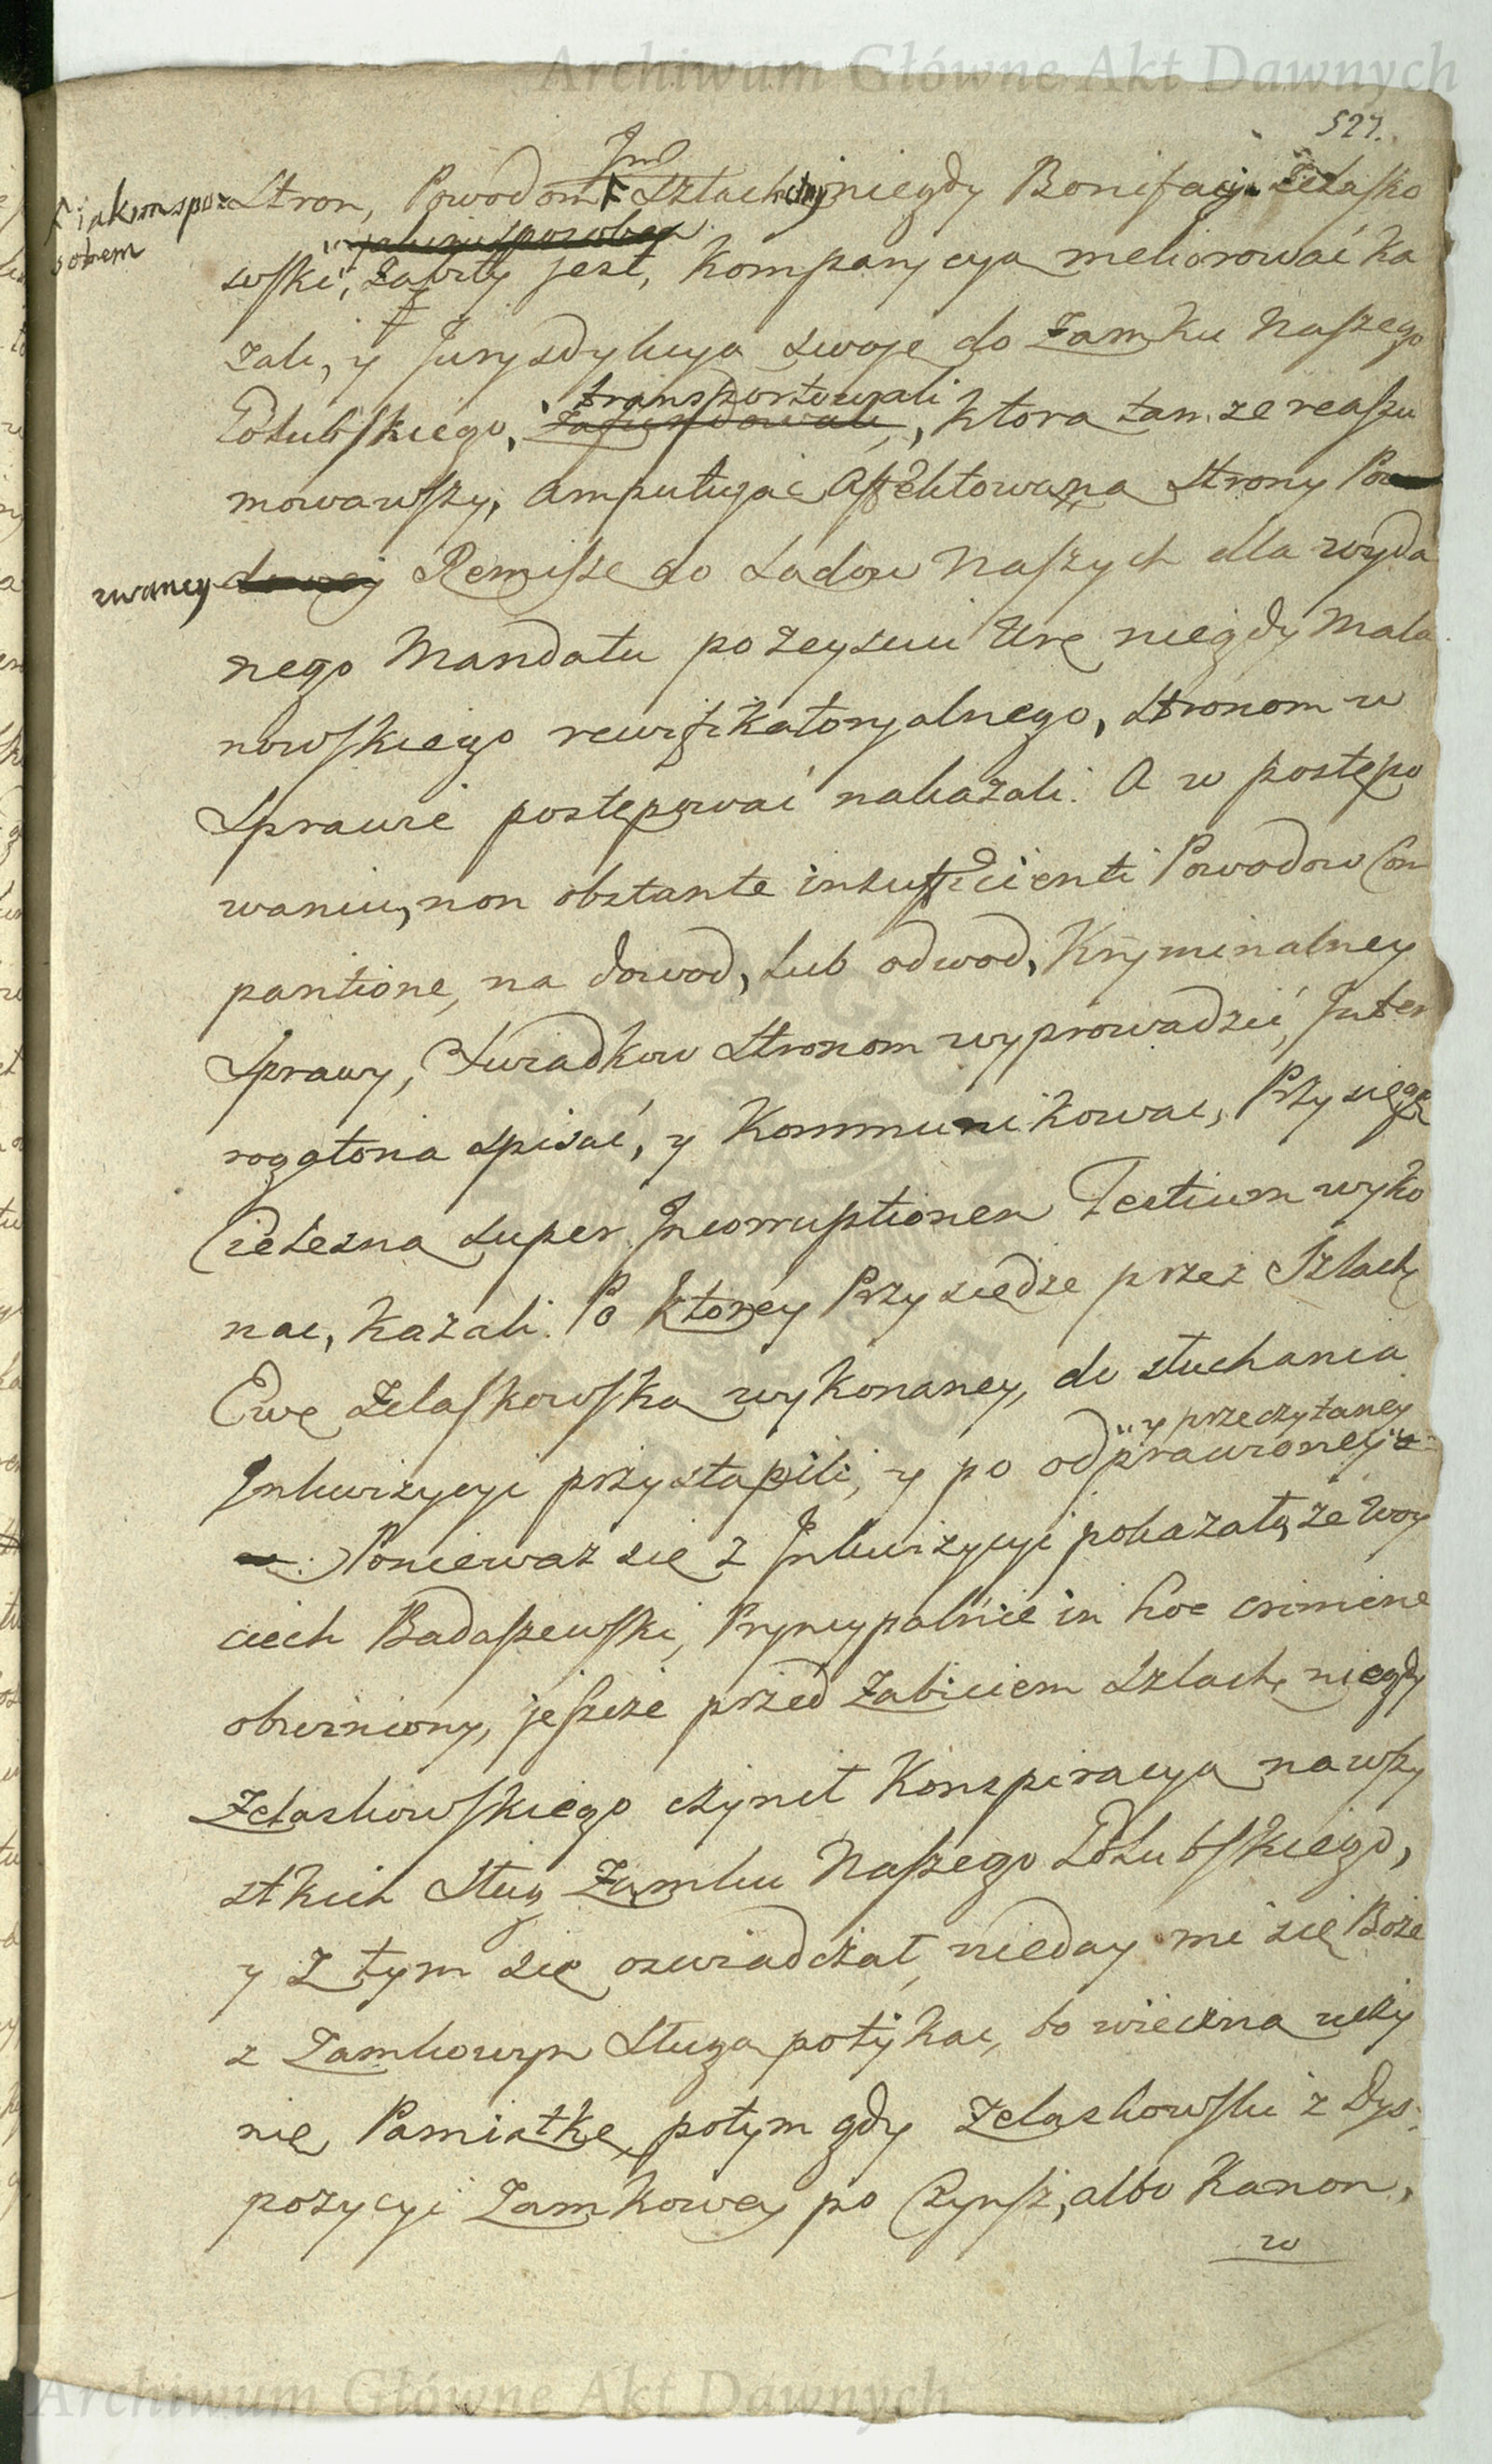 Archiwum Główne Akt Dawnych
527.
Stron, Powodom F Szlachetny niegdy Bonifacy Żelasko
F iakim spo=
sobem
wski, zabity jest, Komparycyą meliorować ka
zali, y Jurysdykcyą swoję do Zamku Naszego
transportowali
Gołubskiego, zafundowali, ktora tam zereaszu
mowawszy, amputując Affektowaną Strony Po
zwaney dowey Remissę do Sądow Naszych dla wyda
nego Mandatu po zeyściu Ur. niegdy Mala
nowskiego rewifikatoryalnego, Stronom w
Sprawie postępować nakazali. A w postępo
waniu, non obstante insufficienti Powodow Com
paritione, na dowod, lub odwod, Kryminalney
Sprawy, Swiadkow Stronom wyprowadzić, Inter
rogatoria spisać, y Kommunikować, Przysięgę
Cielesną super Incorruptionem Testium wyko
nać, kazali. Po ktorey Przysiędze przez Szlach.
Ewę Zelaskowską wykonaney, do słuchania
y przeczytaney
Inkwizycyi przystąpili, y po odprawioney
Ponieważ się z Inkwizycyi pokazało, że Woy
ciech Badaszewski, Pryncypalnie in hoc crimine
obwiniony, jeszcze przed zabiciem Szlach. niegdy
Zelaskowskiego czynił Konspiracyą na wszy
stkich Sług Zamku Naszego Gołubskiego,
y z tym się oswiadczał, nieday mi się Boże
z Zamkowym Sługą potykać, bo wieczną uczy
nię Pamiątkę, potym gdy Zelaskowski z Dys=
pozycyi Zamkowey po Czynsz, albo Kanon,
w
Archiwum Główne Akt Dawnych